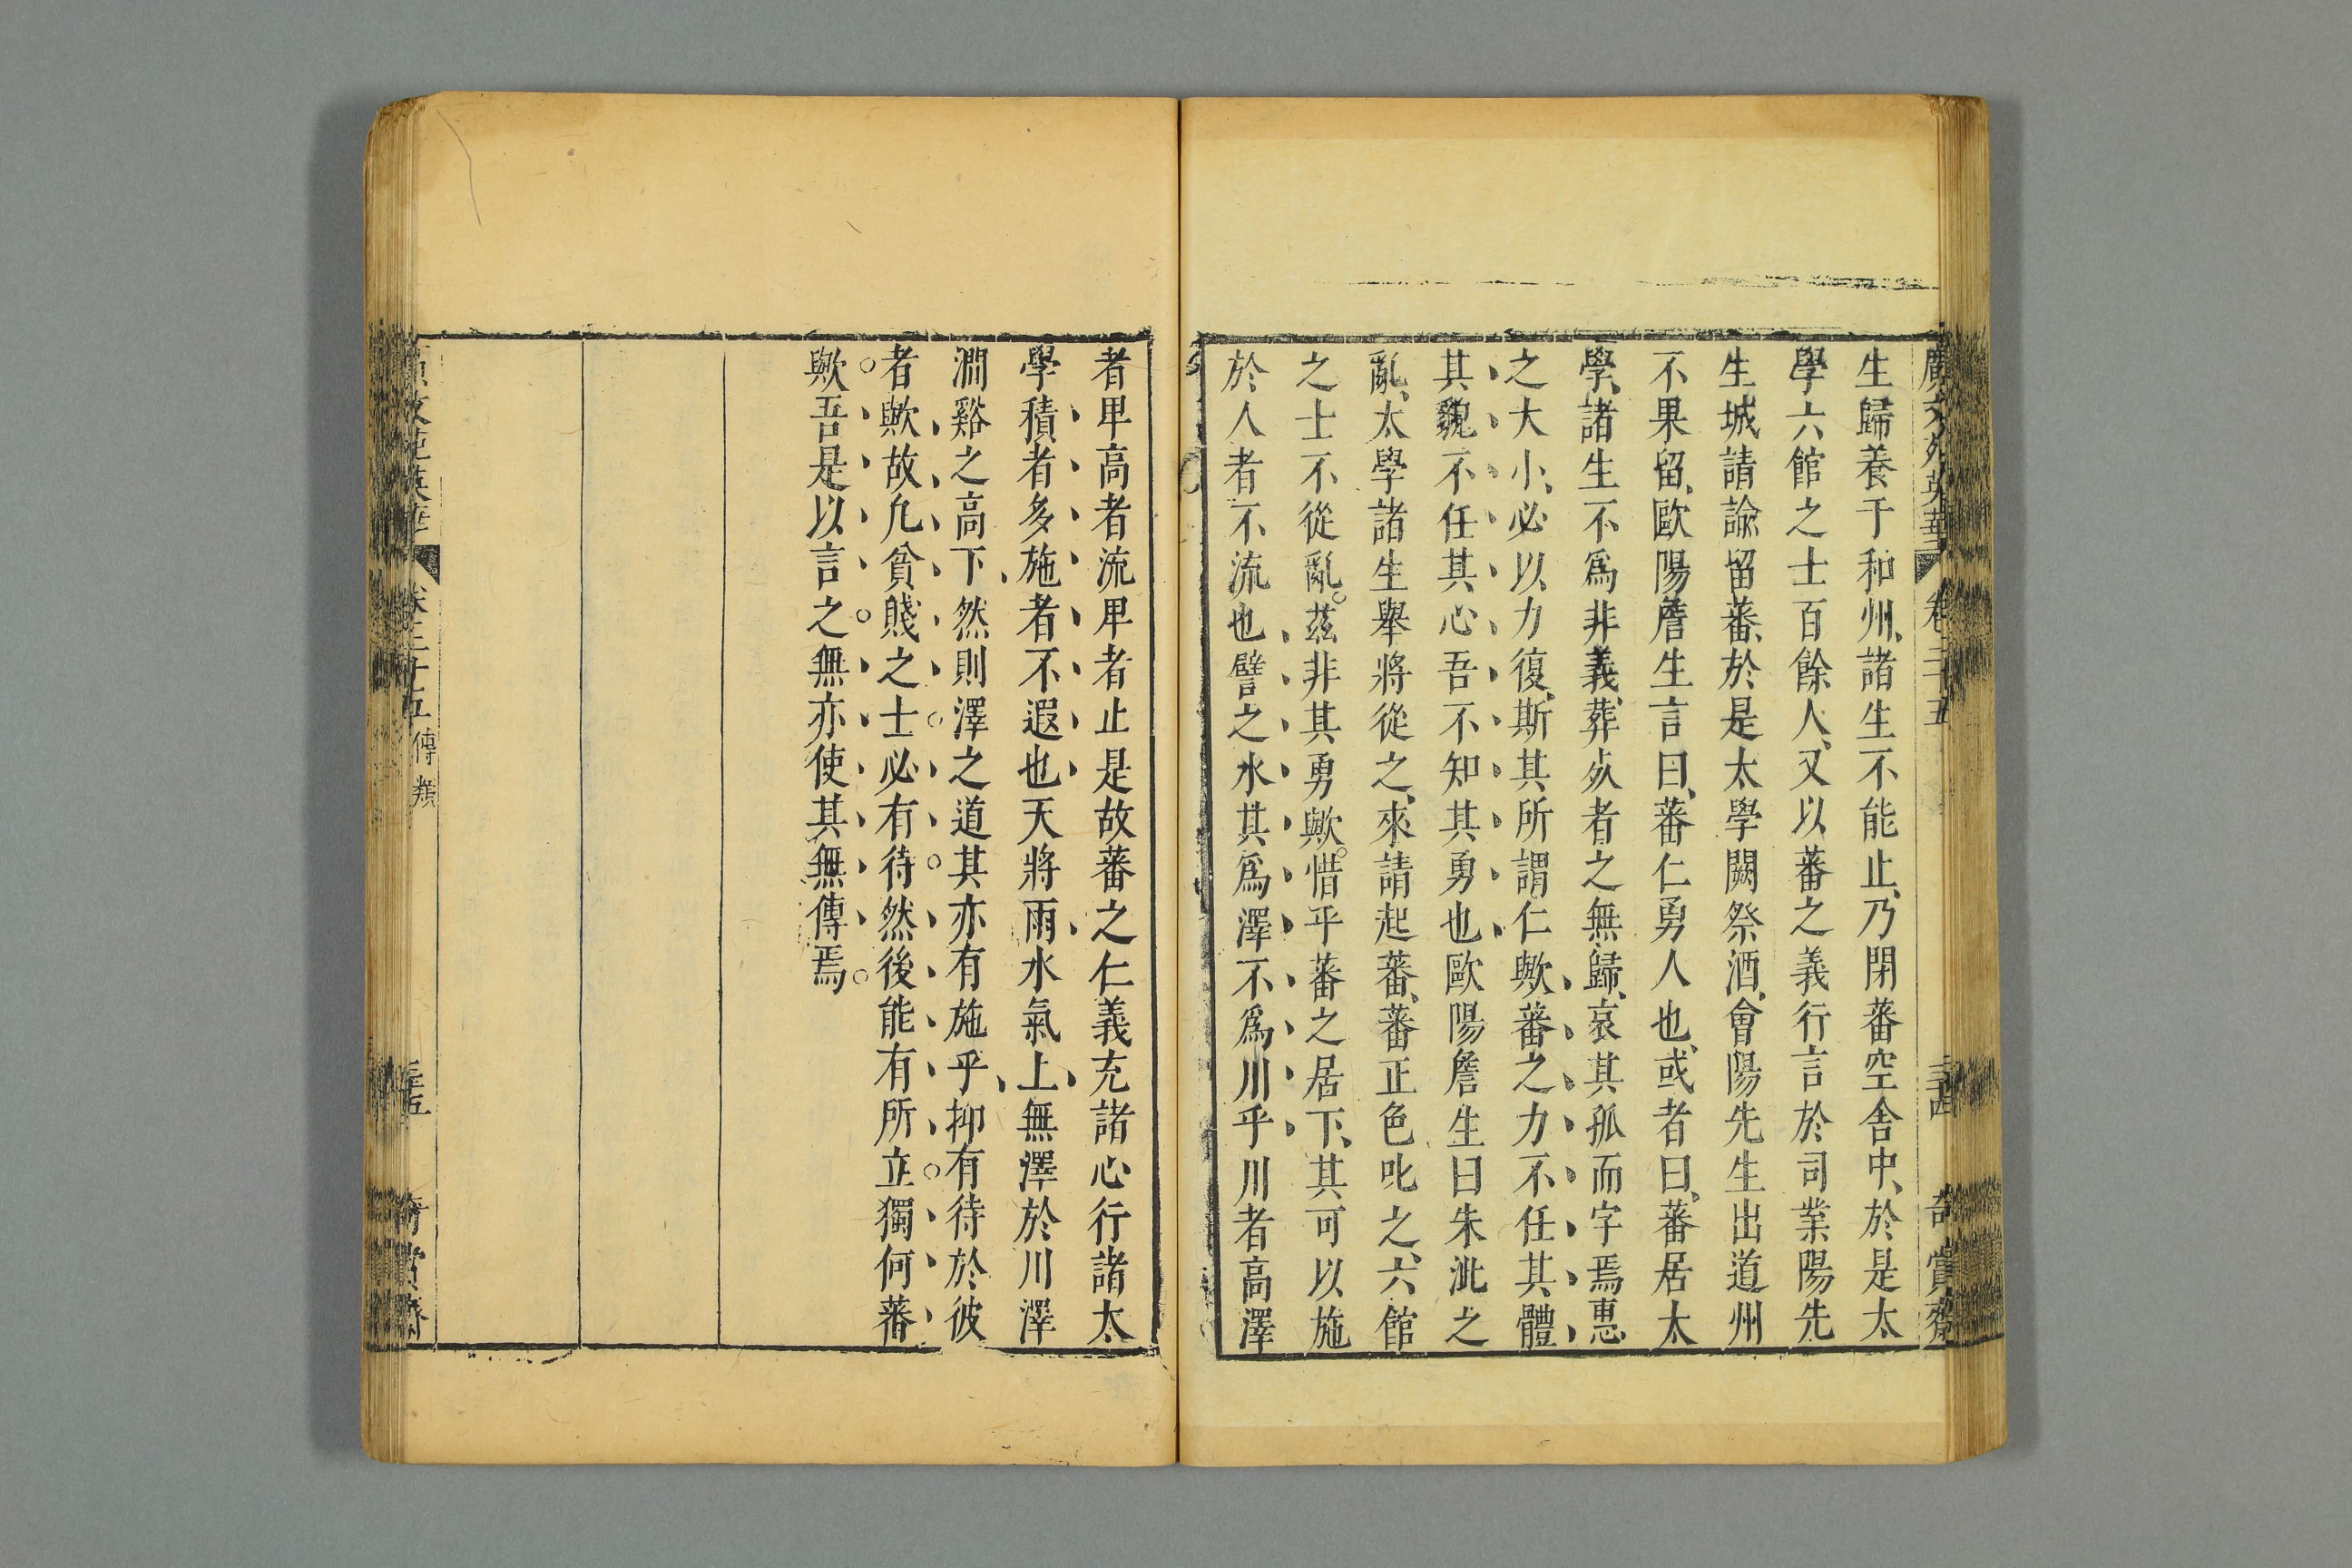 廣文苑英華 卷二十五 三十四 奇賞齋
生歸養于和州、諸生不能止、乃閉蕃空舍中、於是太
學六館之士百餘人、又以蕃之義行言於司業陽先
生城請諭留蕃、於是太學闕祭酒、會陽先生出道州
不果留、歐陽詹生言曰、蕃仁勇人也、或者曰、蕃居太
學、諸生不爲非義、葬死者之無歸、哀其孤而字焉惠
之大小、必以力復、斯其所謂仁歟、蕃之力不任其體
其貌不任其心吾不知其勇也歐陽詹生曰朱泚之
亂、太學諸生舉將從之、來請起蕃、蕃正色叱之、六館
之士不從亂。茲非其勇歟。惜乎蕃之居下、其可以施
於人者不流也譬之水其爲澤不爲川乎川者高澤
者卑高者流卑者止是故蕃之仁義充諸心行諸太
學積者多施者不遐也天將雨水氣上無澤於川澤
澗谿之高下然則澤之道其亦有施乎抑有待於彼
者歟故凡貧賤之士必有待然後能有所立獨何蕃
歟吾是以言之無亦使其無傳焉
文苑英華 卷二十五 傳類 三十五 奇賞齋